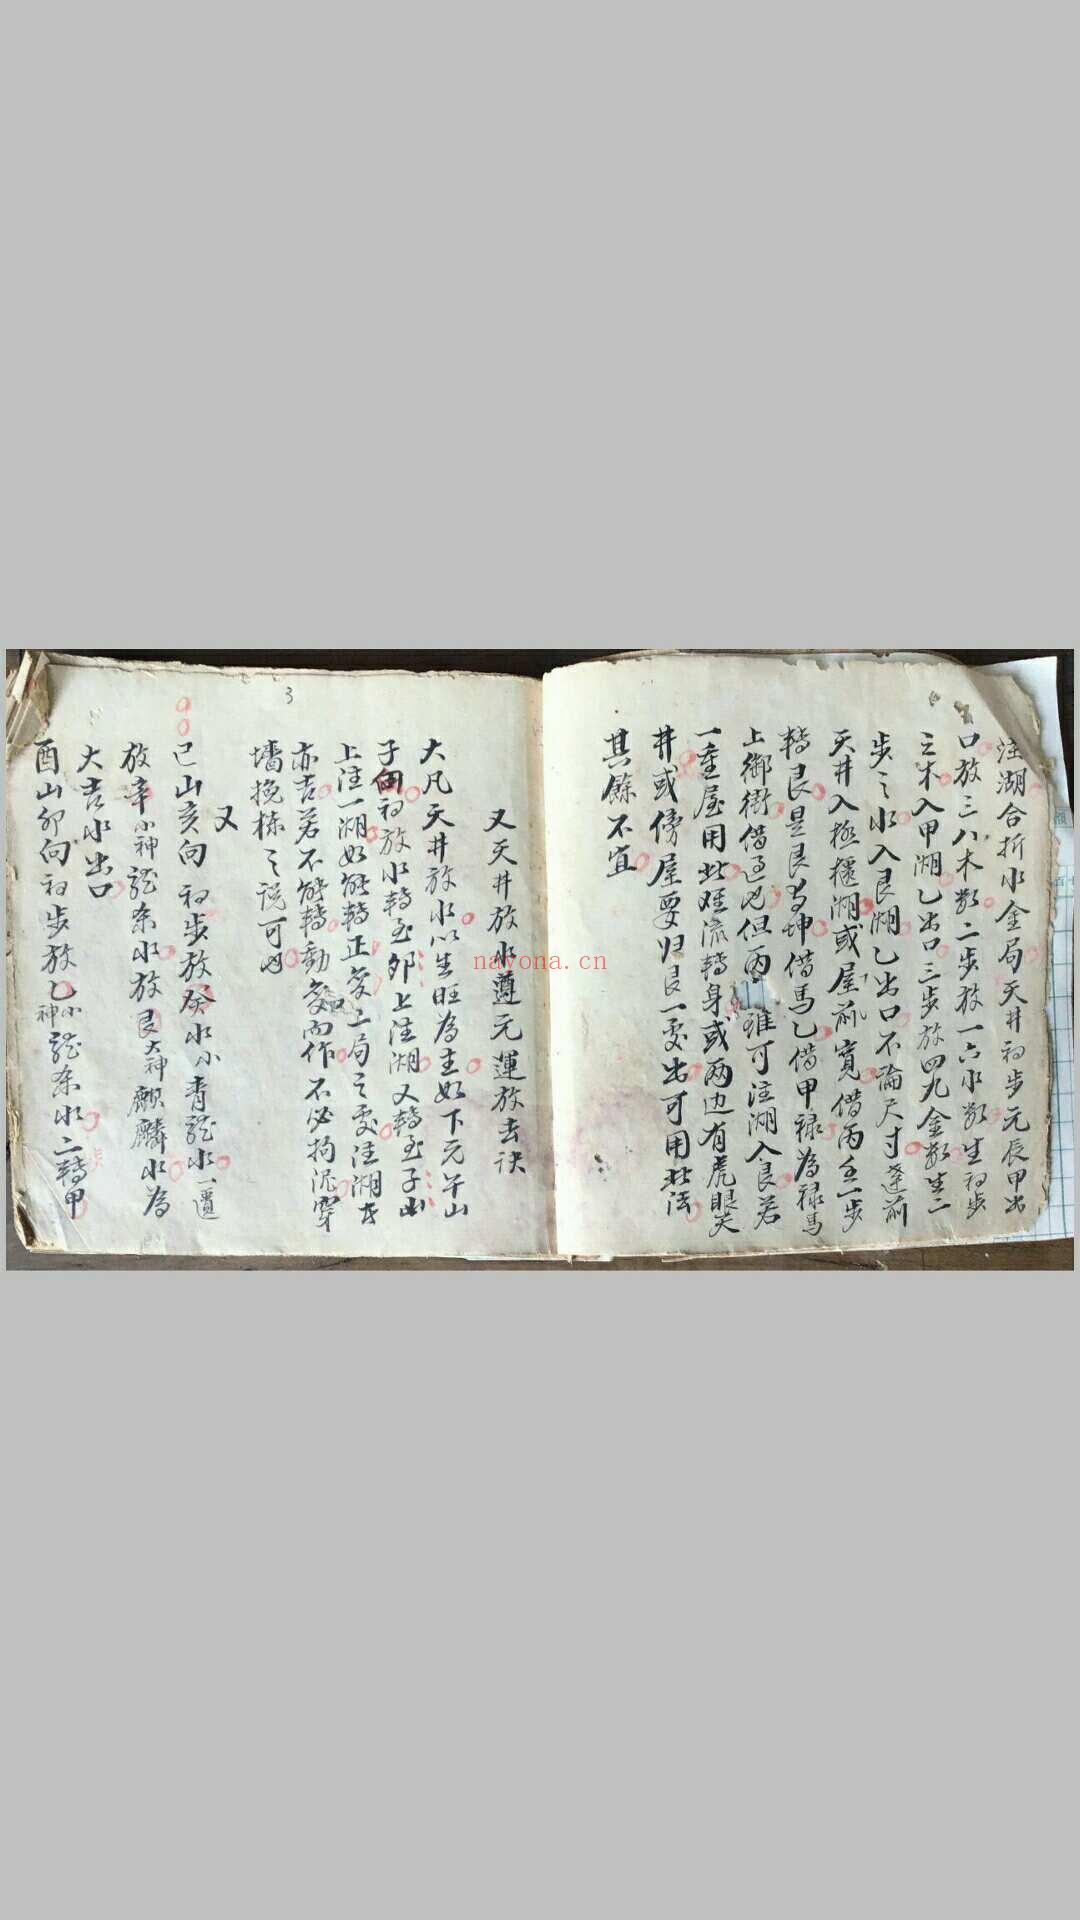 注湖合折水金局天井初步元辰甲出
口放三八木数二步放一六水数生初步
之木入甲湖乙出口三步放四九金数生二
步之水入艮湖乙出口不論尺寸逢前
天井入極櫃湖或屋前寬借丙壬一步
轉艮是艮坤借馬乙借甲禄為禄馬
上御街借過他但丙雖可注湖入艮若
一重屋用此难流轉身或两边有虎眼天
井或傍屋要归艮一处出可用此法
其餘不宜
又天井放水遵元運放去訣
大凡天井放水以生旺為主如下元午山
子向初放水轉至卯上注湖又轉至子山
上注一湖如能轉正変二局之处注湖去
亦吉若不能轉動変向作不必拘泥穿
墙挽栋之説可也
3
又
巳山亥向 初步放癸水小青龍水一置
放辛小神龍参水放艮大神麒麟水為
大吉水出口
酉山卯向初步放乙小神龍参水二轉甲
nayona.cn